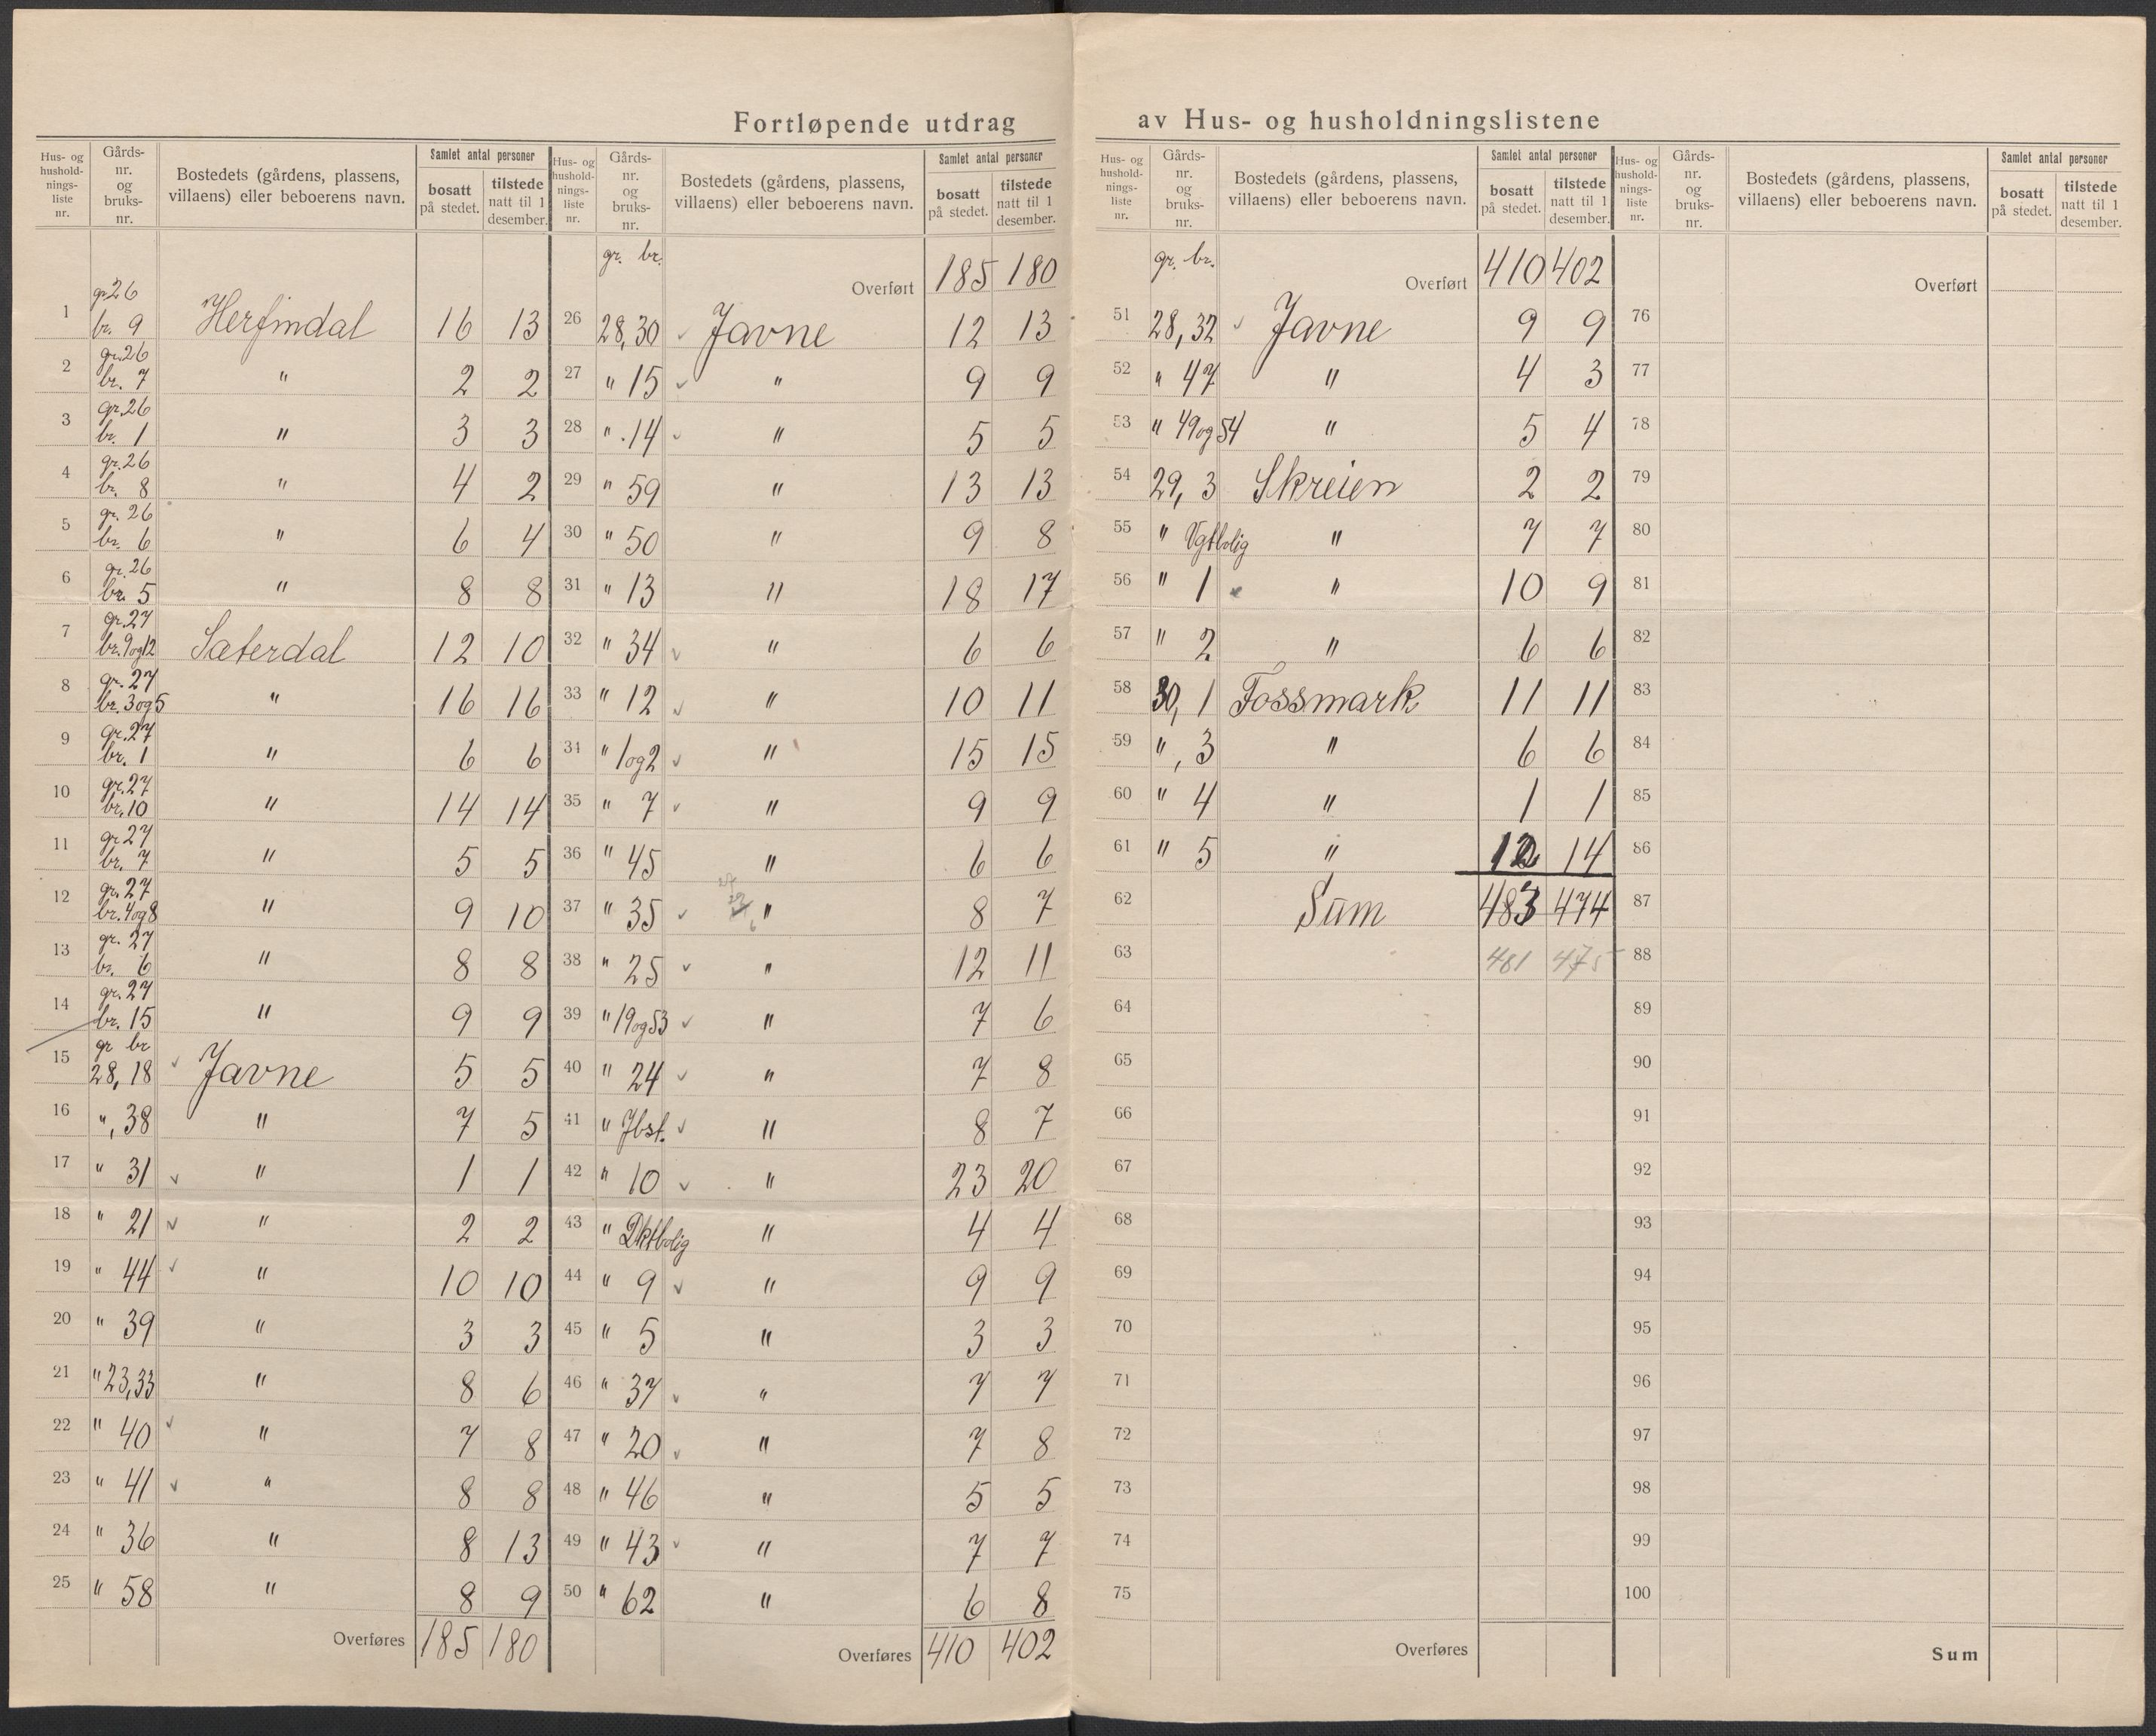 Fortløpende utdrag av Hus- og husholdningslistene
Hus- og hushold-nings-liste nr. Gårds-nr. og bruks-nr. Bostedets (gårdens, plassens, villaens) eller beboerens navn. Samlet antal personer bosatt på stedet. tilstede natt til 1 desember.
1 gr. 26 br. 9 Herfindal 16 13
2 gr. 26 br. 7 " 2 2
3 gr. 26 br. 1 " 3 3
4 gr. 26 br. 8 " 4 2
5 gr. 26 br. 6 " 6 4
6 gr. 26 br. 5 " 8 8
7 gr. 27 br. 9og12 Sæterdal 12 10
8 gr. 27 br. 3og5 " 16 16
9 gr. 27 br. 1 " 6 6
10 gr. 27 br. 10 " 14 14
11 gr 27 br. 7 " 5 5
12 gr. 27 br. 4og8 " 9 10
13 gr. 27 br. 6 " 8 8
14 gr. 27 br. 15 " 9 9
gr br
15 28, 18 ✓ Javne 5 5
16 ", 38 " 7 5
17 " 31 ✓ " 1 1
18 " 21 ✓ " 2 2
19 " 44 ✓ " 10 10
20 " 39 " 3 3
21 " 23,33 " 8 6
22 " 40 ✓ " 7 8
23 " 41 ✓ " 8 8
24 " 36 " 8 13
25 " 58 " 8 9
Overføres 185 180
Hus- og hushold-nings-liste nr. Gårds-nr. og bruks-nr. Bostedets (gårdens, plassens, villaens) eller beboerens navn. Samlet antal personer bosatt på stedet. tilstede natt til 1 desember.
gr. br. Overført 185 180
26 28,30 ✓ Javne 12 13
27 " 15 ✓ " 9 9
28 " 14 ✓ " 5 5
29 " 59 " 13 13
30 " 50 " 9 8
31 " 13 " 18 17
32 " 34 ✓ " 6 6
33 " 12 ✓ " 10 11
34 " 1og2 ✓ " 15 15
35 " 7 ✓ " 9 9
36 " 45 " 6 6
37 " 35 ✓ " 8 7
38 " 25 ✓ " 12 11
39 " 19og53 ✓ " 7 6
40 " 24 ✓ " 7 8
41 " Jbst. ✓ " 8 7
42 " 10 ✓ " 23 20
43 " Dktbolig " 4 4
44 " 9 ✓ " 9 9
45 " 5 " 3 3
46 " 37 ✓ " 7 7
47 " 20 ✓ " 7 8
48 " 46 " 5 5
49 " 43 ✓ " 7 7
50 " 62 " 6 8
Overføres 410 402
Hus- og hushold-nings-liste nr. Gårds-nr. og bruks-nr. Bostedets (gårdens, plassens, villaens) eller beboerens navn. Samlet antal personer bosatt på stedet. tilstede natt til 1 desember.
gr. br. Overført 410 402
51 28,32 ✓ Javne 9 9
52 " 47 " 4 3
53 " 49og54 " 5 4
54 29, 3 Skreien 2 2
55 " Vgtbolig " 7 7
56 " 1 ✓ " 10 9
57 " 2 " 6 6
58 30, 1 Fossmark 11 11
59 ", 3 " 6 6
60 " 4 " 1 1
61 " 5 " 12 14
62 Sum 483 474
63 481 475
64
65
66
67
68
69
70
71
72
73
74
75
Overføres
Hus- og hushold-nings-liste nr. Gårds-nr. og bruks-nr. Bostedets (gårdens, plassens, villaens) eller beboerens navn. Samlet antal personer bosatt på stedet. tilstede natt til 1 desember.
Overført
76
77
78
79
80
81
82
83
84
85
86
87
88
89
90
91
92
93
94
95
96
97
98
99
100
Sum